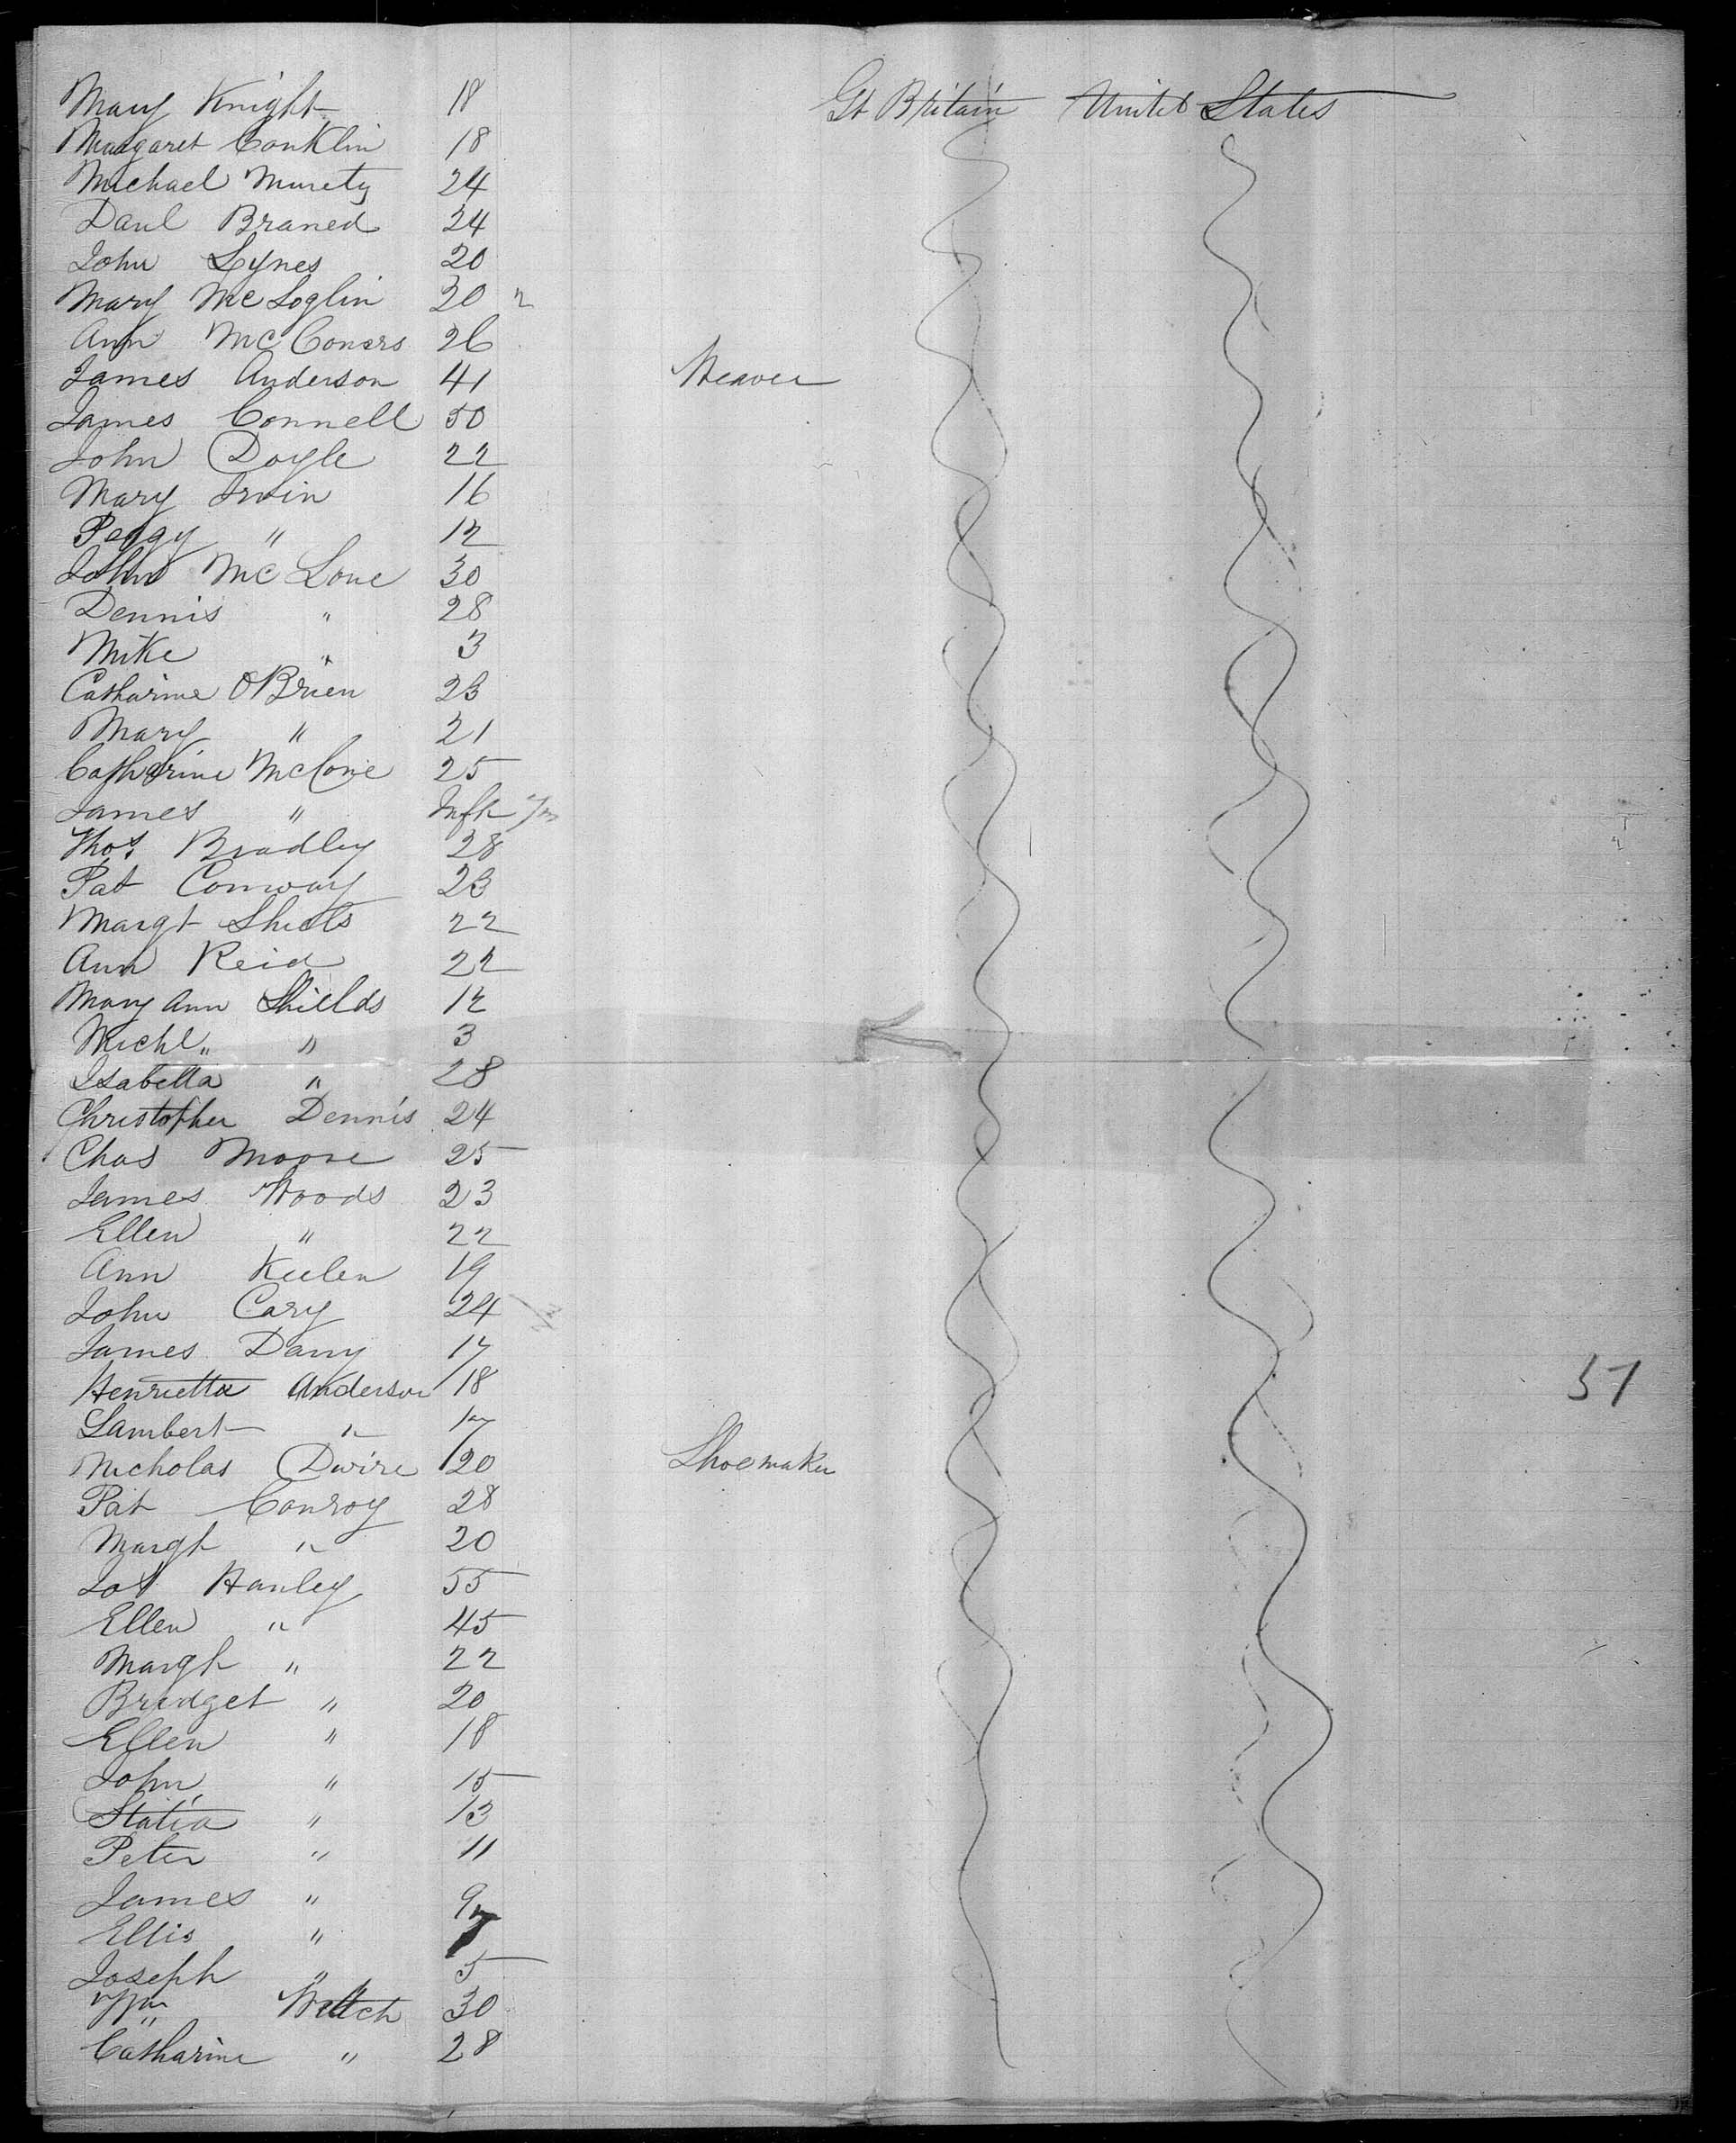 Mary Knight 18 Gt Britain United States
Margaret Conklin 18
Michael Murety 24
Danl Braned 24
John Lynes 20
Mary McLoglin 30
Ann McConers 26
James Anderson 41 Weaver
James Connell 50
John Doyle 22
Mary Irvin 16
Peggy " 12
John McLone 30
Dennis " 28
Mike " 3
Catharine OBrien 23
Mary " 21
Catharine McCone 25
James " Inft
Thos. Bradley 28
Pat Conway 23
Margt Shiels 22
Ann Reid 22
Mary Ann Shields 12
Michl " 3
Isabella " 28
Christopher Dennis 24
Chas Moore 25
James Woods 23
Ellen " 22
Ann Keelen 19
John Cary 24
James Dany 17
Henrietta Anderson 18
Lambert " 17
Nicholas Dwire 20 Shoemaker
Pat Conroy 28
Margt " 20
Jos Hanley 55
Ellen " 45
Margt " 22
Bridget " 20
Ellen " 18
John " 15
Statia " 13
Peter " 11
James " 9
Ellis " 7
Joseph " 5
Wm Welch 30
Catharine " 28